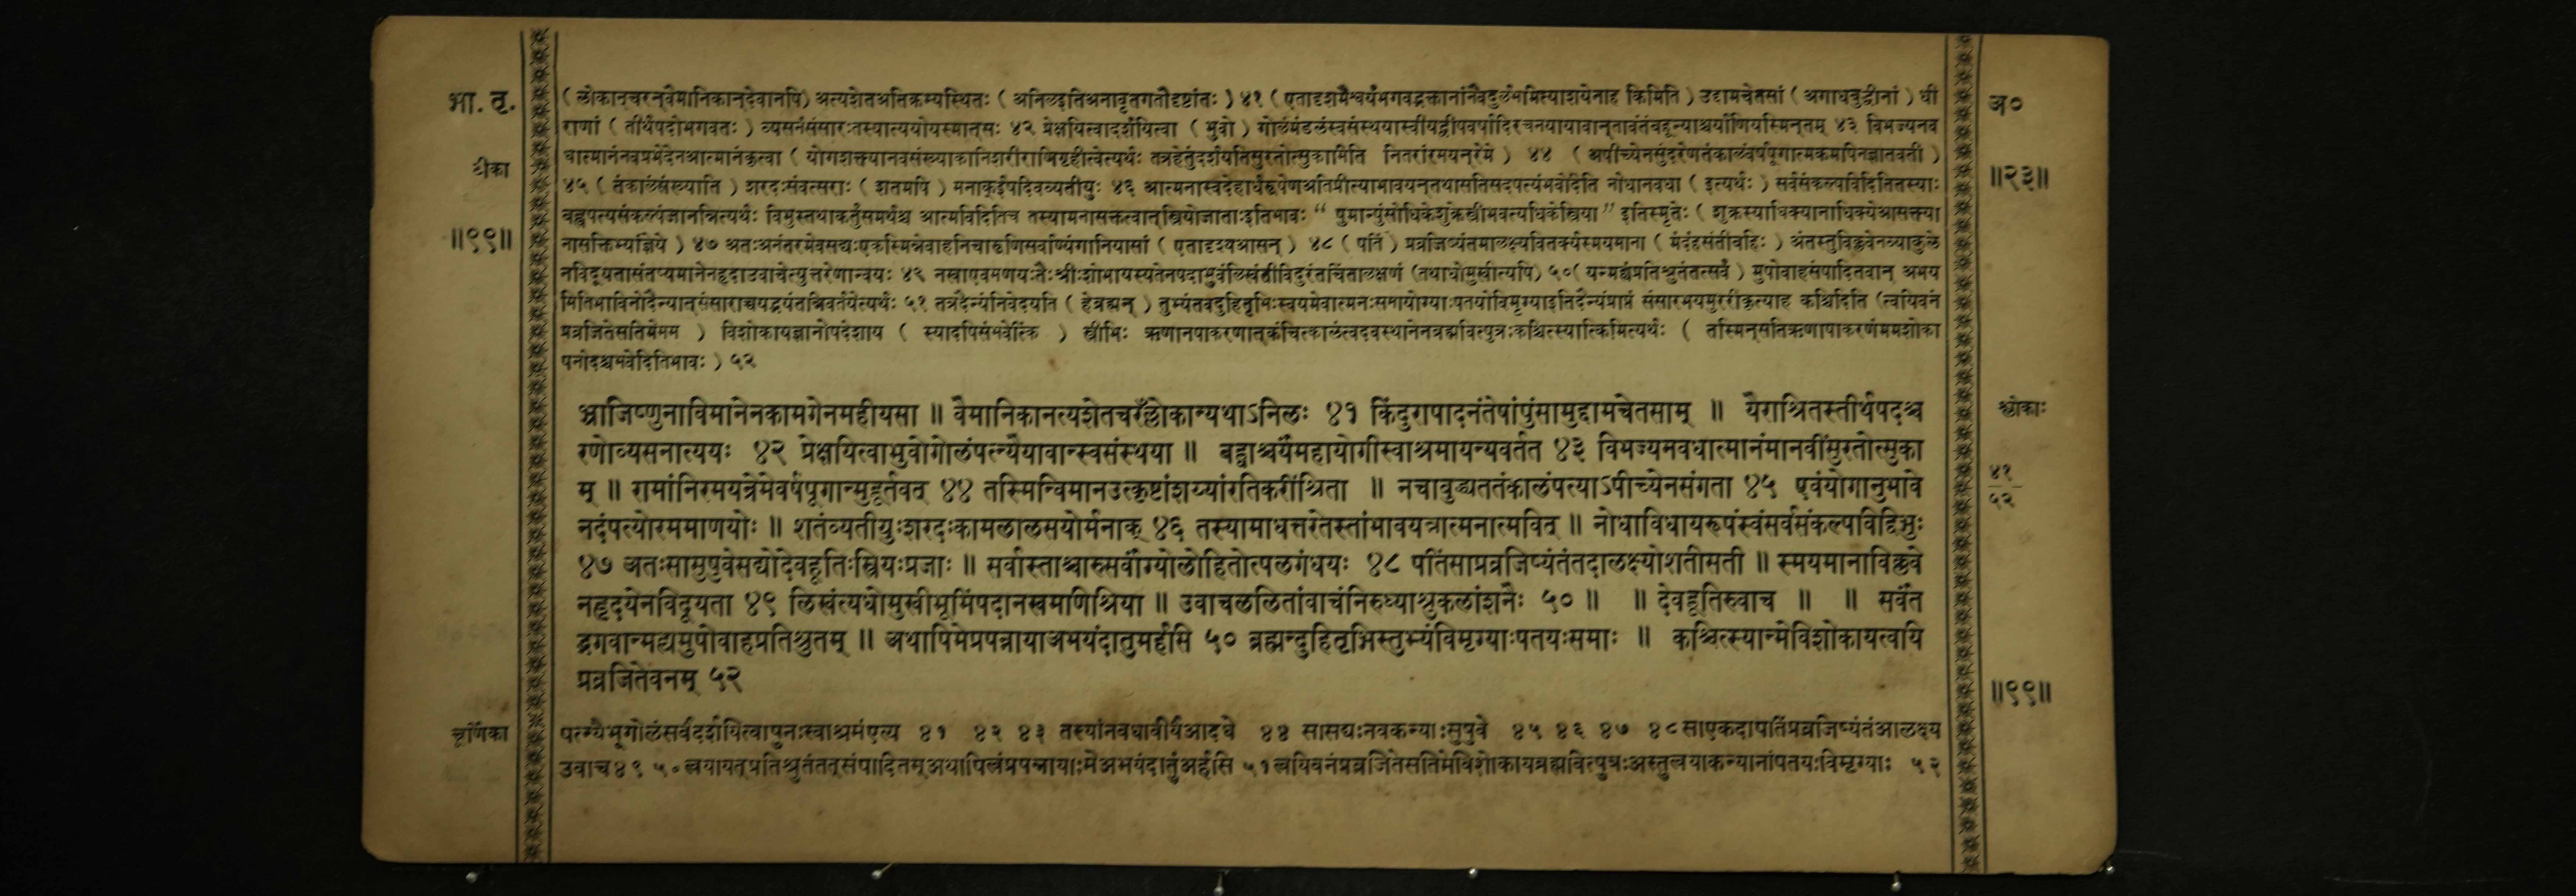 भा. तृ.
(लोकान्चरन्वैमानिकान्देवानपि) अत्यशेतअतिक्रम्यस्थितः (अनिलइतिअनावृतगतौदृष्टांतः) ४१ (एतादृशमैश्वर्यंभगवद्भक्तानांनैवदुर्लभमित्याशयेनाह किमिति) उद्दामचेतसां (अगाधबुद्धीनां) धी
राणां (तीर्थपदोभगवतः) व्यसनंसंसारःतस्यात्ययोयस्मात्सः ४२ प्रेक्षयित्वादर्शयित्वा (भुवो) गोलंमंडलंस्वसंस्थयास्वीयद्वीपवर्षादिरचनयायावान्तावंतंबहून्याश्चर्याणियस्मिन्तम् ४३ विभज्यनव
धात्मानंनवप्रभेदेनआत्मानंकृत्वा (योगशक्त्यानवसंख्याकानिशरीराणिगृहीत्वेत्यर्थः तत्रहेतुंदर्शयतिसुरतोत्सुकामिति नितरांरमयन्रेमे) ४४ (अपीच्येनसुंदरेणतंकालंवर्षपूगात्मकमपिनज्ञातवती)
४५ (तंकालंसंख्याति) शरदःसंवत्सराः (शतमपि) मनाक्ईषदिवव्यतीयुः ४६ आत्मनास्वदेहार्धरूपेणअतिप्रीत्याभावयन्तथासतिसदपत्यंभवेदिति नोधानवधा (इत्यर्थः) सर्वसंकल्पविदितितस्याः
बह्वपत्यसंकल्पंजानन्नित्यर्थः विभुस्तथाकर्तुंसमर्थश्च आत्मविदितिच तस्यामनासक्तत्वात्स्त्रियोजाताःइतिभावः “पुमान्पुंसोधिकेशुक्रेस्त्रीभवत्यधिकेस्त्रिया” इतिस्मृतेः (शुक्रस्याधिक्यानाधिक्येआसक्त्या
नासक्तिभ्यांज्ञेये) ४७ अतःअनंतरमेवसद्यःएकस्मिन्नेवाहनिचारूणिसर्वाण्यंगानियासां (एतादृश्यआसन्) ४८ (पतिं) प्रव्रजिष्यंतमालक्ष्यवितर्क्यस्मयमाना (मंदंहसंतीबहिः) अंतस्तुविक्लवेनव्याकुले
नविदूयतासंतप्यमानेनहृदाउवाचेत्युत्तरेणान्वयः ४९ नखाएवमणयःतैःश्रीःशोभायस्यतेनपदाभुवंलिखंतीविदुरंतचिंतालक्षणं (तथाधोमुखीत्यपि) ५० (यन्मह्यंप्रतिश्रुतंतत्सर्वं) मुपोवाहसंपादितवान् अभय
मितिभाविनोदैन्यात्संसाराच्चयद्भयंतन्निवर्तयेत्यर्थः ५१ तत्रदैन्यंनिवेदयति (हेब्रह्मन्) तुभ्यंतवदुहितृभिःस्वयमेवात्मनःसमायोग्याःपतयोविमृग्याइतिदैन्यंप्राप्तं संसारभयमुररीकृत्याह कश्चिदिति (त्वयिवनं
प्रव्रजितेसतिमेमम) विशोकायज्ञानोपदेशाय (स्यादपिसंभवेत्किं) स्त्रीभिः ऋणानपाकरणात्कंचित्कालंत्वदवस्थानेनब्रह्मवित्पुत्रःकश्चित्स्यात्किमित्यर्थः (तस्मिन्सतिऋणापाकरणंममशोका
पनोदश्चभवेदितिभावः) ५२
टीका
॥९९॥
अ०
॥२३॥
भ्राजिष्णुनाविमानेनकामगेनमहीयसा ॥ वैमानिकानत्यशेतचरँल्लोकान्यथाऽनिलः ४१ किंदुरापादनंतेषांपुंसामुद्दामचेतसाम् ॥ यैराश्रितस्तीर्थपदश्च
रणोव्यसनात्ययः ४२ प्रेक्षयित्वाभुवोगोलंपत्न्यैयावान्स्वसंस्थया ॥ बह्वाश्चर्यंमहायोगीस्वाश्रमायन्यवर्तत ४३ विभज्यनवधात्मानंमानवींसुरतोत्सुका
म् ॥ रामांनिरमयन्रेमेवर्षपूगान्मुहूर्तवत् ४४ तस्मिन्विमानउत्कृष्टांशय्यांरतिकरींश्रिता ॥ नचाबुद्ध्यततंकालंपत्याऽपीच्येनसंगता ४५ एवंयोगानुभावे
नदंपत्योरममाणयोः ॥ शतंव्यतीयुःशरदःकामलालसयोर्मनाक् ४६ तस्यामाधत्तरेतस्तांभावयन्नात्मनात्मवित् ॥ नोधाविधायरूपंस्वंसर्वसंकल्पविद्विभुः
४७ अतःसासुषुवेसद्योदेवहूतिःस्त्रियःप्रजाः ॥ सर्वास्ताश्चारुसर्वांग्योलोहितोत्पलगंधयः ४८ पतिंसाप्रव्रजिष्यंतंतदालक्ष्योशतीसती ॥ स्मयमानाविक्लवे
नहृदयेनविदूयता ४९ लिखंत्यधोमुखीभूमिंपदानखमणिश्रिया ॥ उवाचललितांवाचंनिरुध्याश्रुकलांशनैः ५० ॥ ॥ देवहूतिरुवाच ॥ ॥ सर्वंत
द्भगवान्मह्यमुपोवाहप्रतिश्रुतम् ॥ अथापिमेप्रपन्नायाअभयंदातुमर्हसि ५० ब्रह्मन्दुहितृभिस्तुभ्यंविमृग्याःपतयःसमाः ॥ कश्चित्स्यान्मेविशोकायत्वयि
प्रव्रजितेवनम् ५२
श्लोकाः
४१
५२
॥९९॥
चूर्णिका
पत्न्यैभूगोलंसर्वंदर्शयित्वापुनःस्वाश्रमंएत्य ४१ ४२ ४३ तस्यांनवधावीर्यंआदधे ४४ सासद्यःनवकन्याःसुषुवे ४५ ४६ ४७ ४८साएकदापतिंप्रव्रजिष्यंतंआलक्ष्य
उवाच४९ ५०त्वयायत्प्रतिश्रुतंतत्संपादितम्अथापित्वंप्रपन्नायाःमेअभयंदातुंअर्हसि ५१त्वयिवनंप्रव्रजितेसतिमेविशोकायब्रह्मवित्पुत्रःअस्तुत्वयाकन्यानांपतयःविमृग्याः ५२